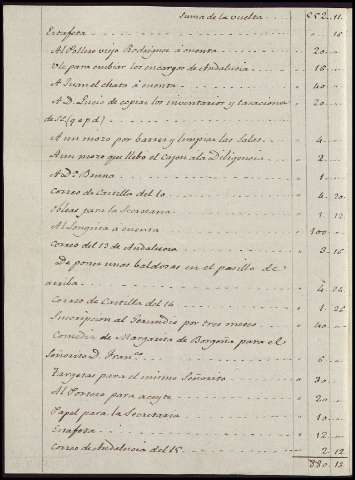 Suma de la vuelta 552. 11.
Estafeta " 15
Al Pellero viejo Rodriguez á cuenta " 20 "
Vte para embiar los encargos de Andalucia " 16 "
A Juan el chato á cuenta " 40 "
A D. Lucio de copiar los inventarios y tasaciones " 20 "
de S.E. (q e p d)
A un mozo por barrer y limpiar las Salas " 4 "
A un mozo que llebo el Cajon a la Diligencia " 2 "
A Dª. Benna " 1 "
Correo de Castilla del 10 " 4. 20
Obleas para la Secretaria " 1. 12
Al Longinos a cuenta " 100 "
Correo del 13 de Andalucia " 3. 16
De poner unas baldosas en el pasillo de
arriba " 4. 24
Correo de Castilla del 14 " 1. 26
Suscripcion al Gerundio por tres meses " 40 "
Comedia de Margarita de Borgoña para el
Señorito D. Franco. " 6 "
Targetas para el mismo Señorito " 30 "
Al Portero para aceyte " 20 "
Papel para la Secretaria " 10 "
Estafeta " 12 "
Correo de Andalucia del 15 " 2. 12
880. 15